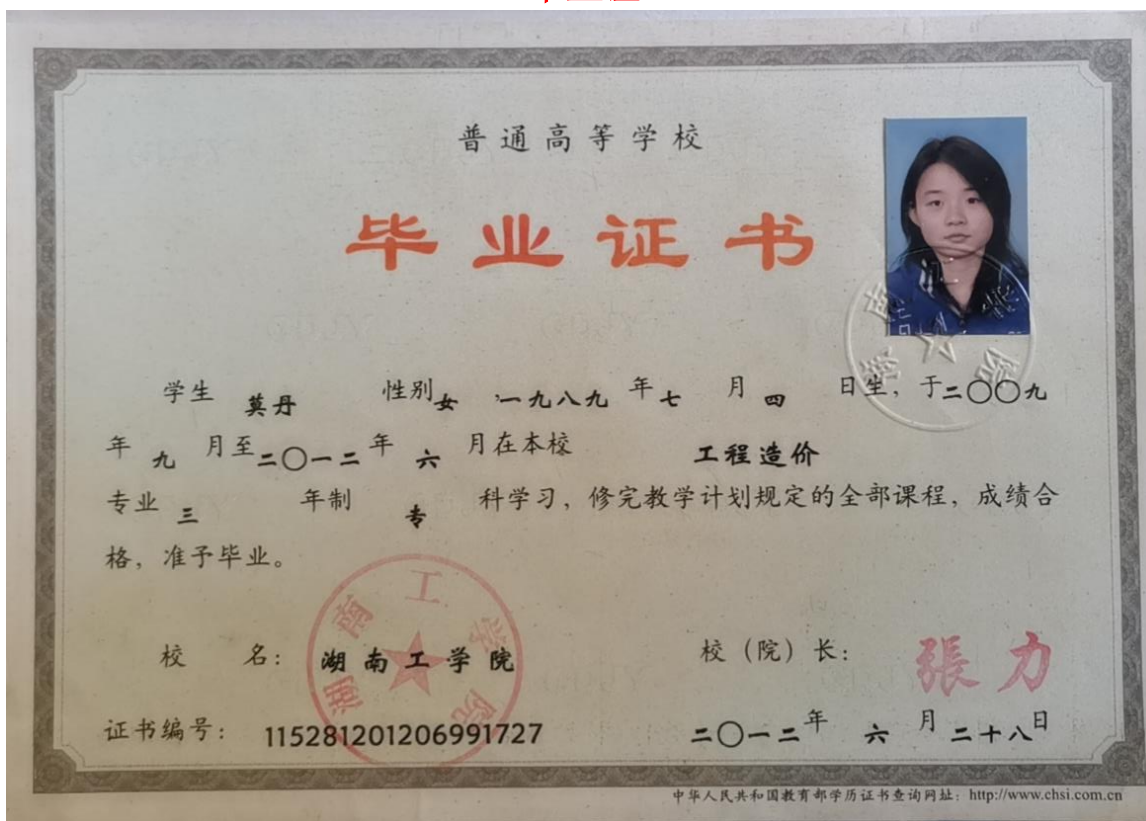 普通高等学校
毕业证书
学生 莫丹 性别女 ,一九八九 年七 月四 日生，于二〇〇九
年九 月至二〇一二年 六 月在本校 工程造价
专业 三 年制 专 科学习，修完教学计划规定的全部课程，成绩合
格，准予毕业。
校 名： 湖南工学院 校（院）长： 張力
湖南工学院
证书编号： 115281201206991727 二〇一二年 六 月二十八日
中华人民共和国教育部学历证书查询网址：http://www.chsi.com.cn